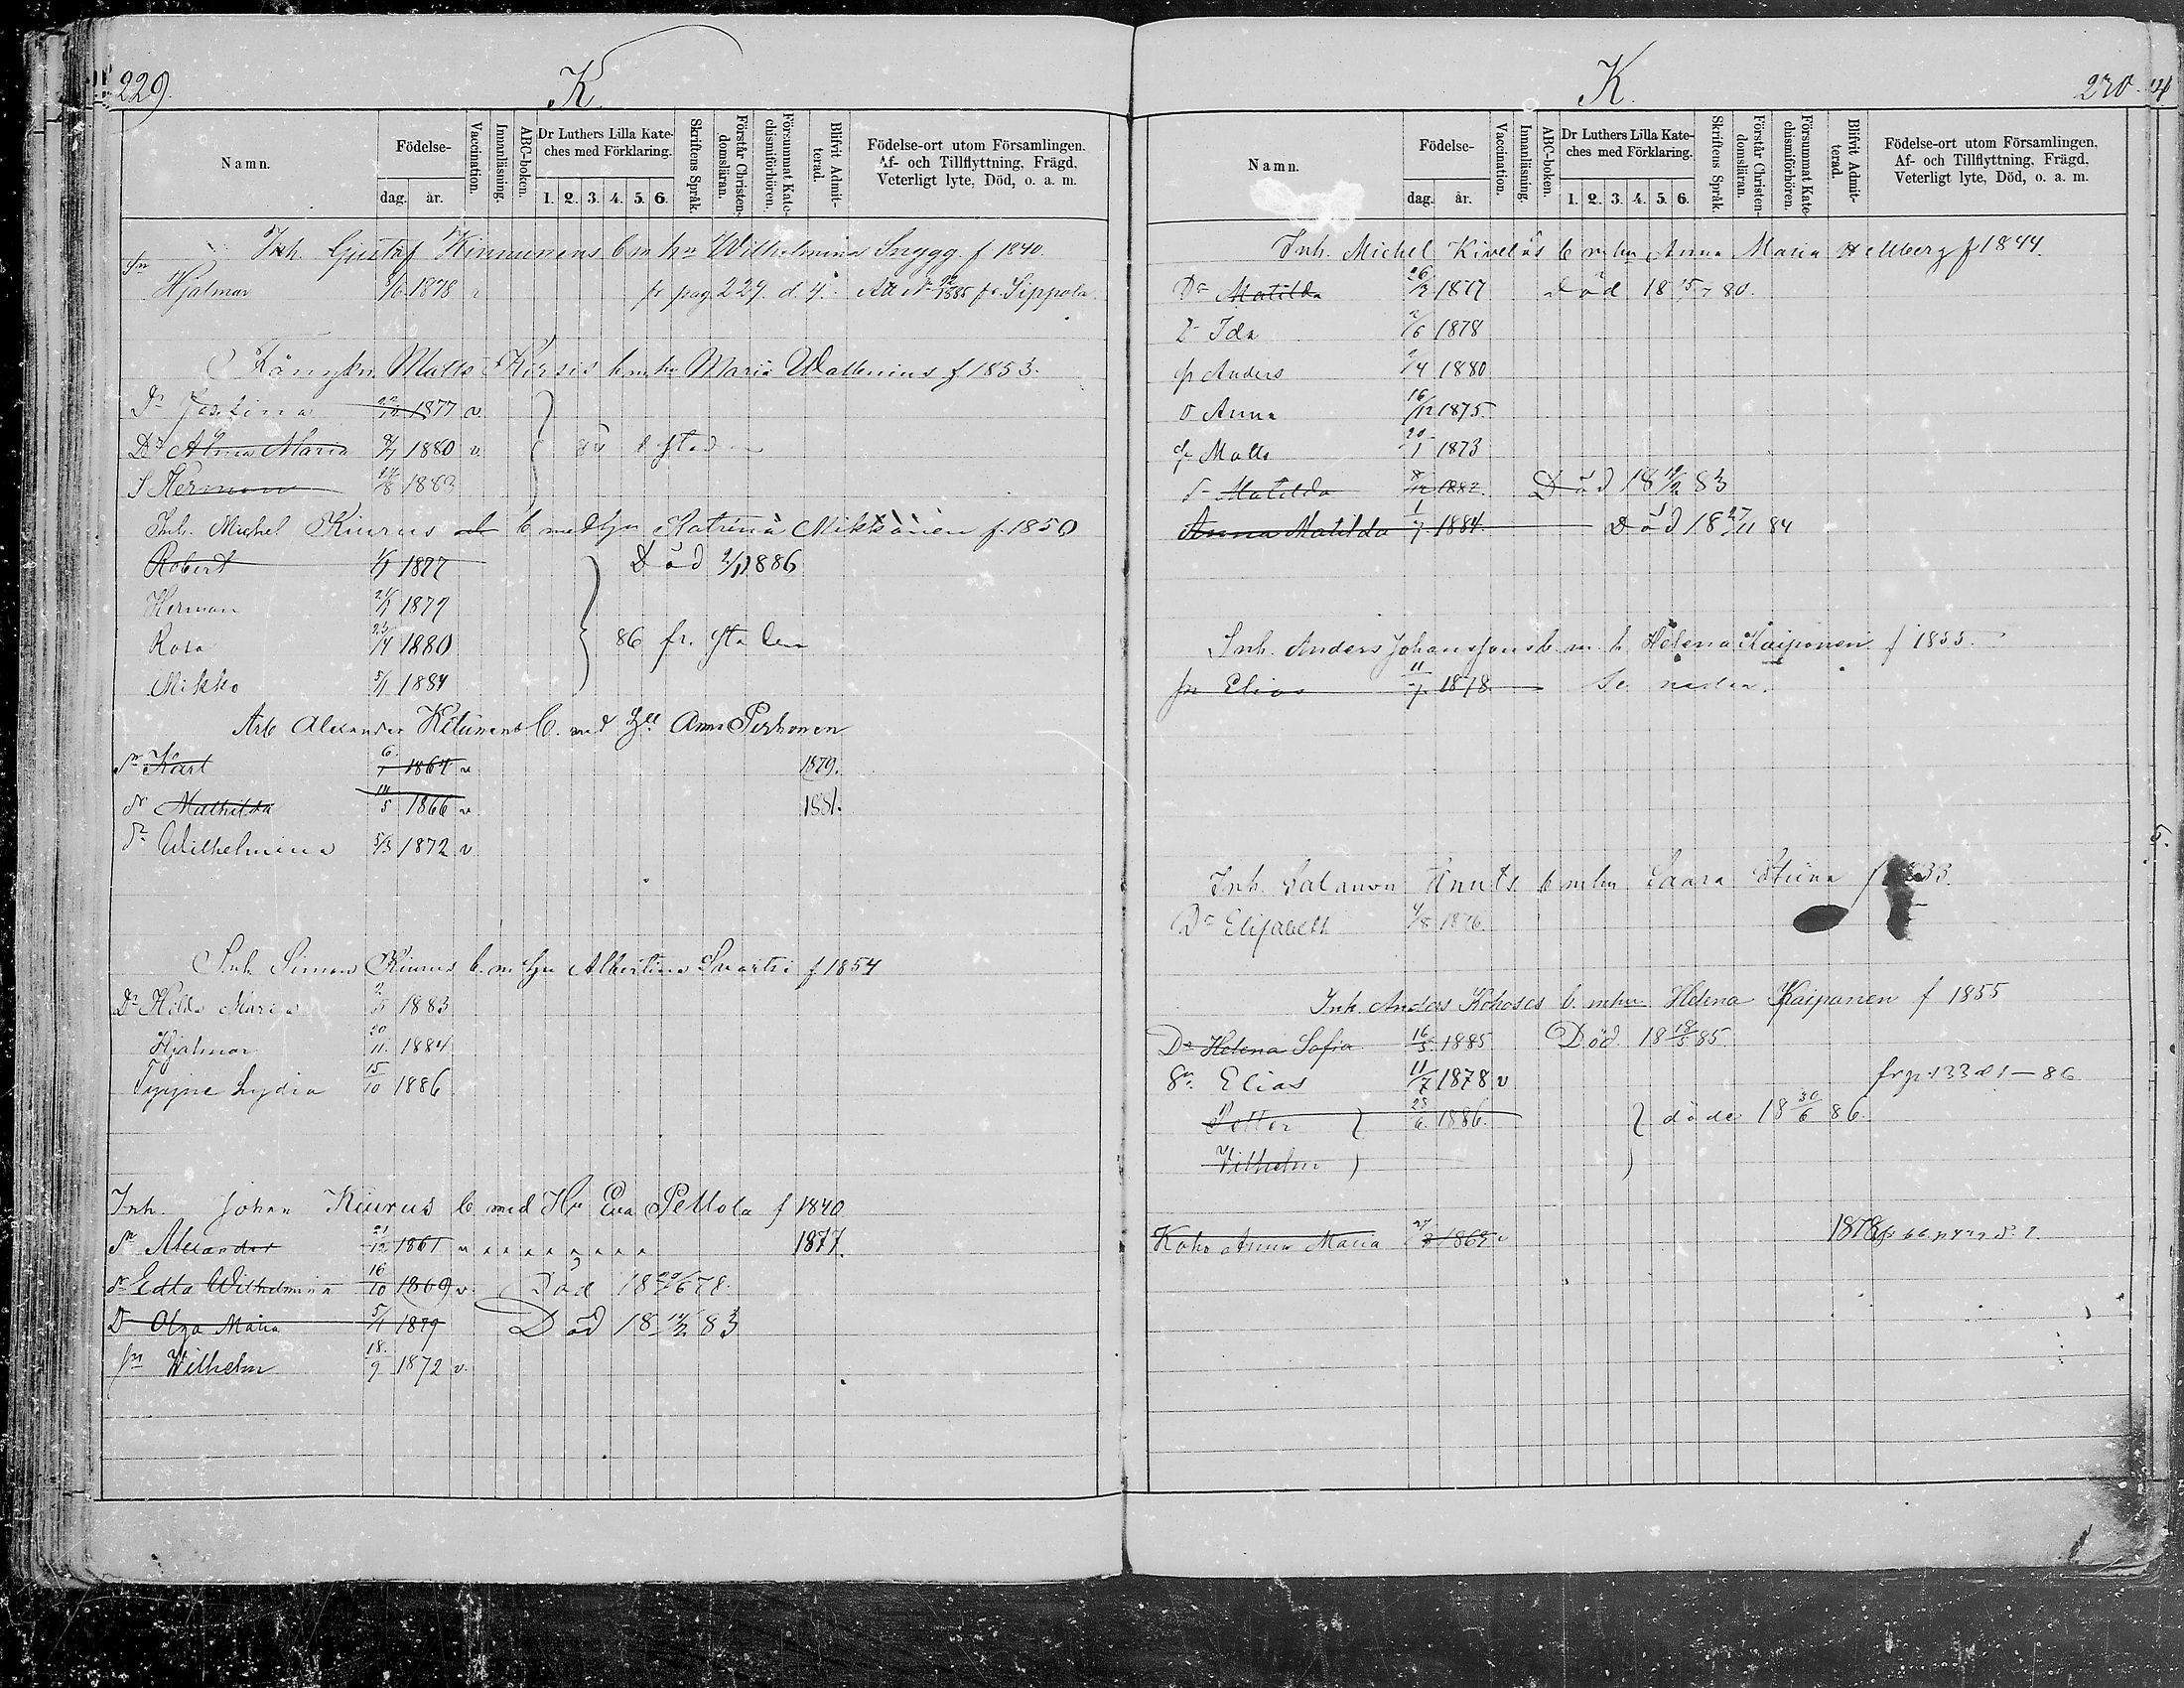 229.
K.
Namn.
Födelse-
dag. år.
Vaccination.
Innanläsning.
ABC-boken.
Dr Luthers Lilla Kateches med Förklaring.
1. 2. 3. 4. 5. 6.
Skriftens Språk.
Förstår Christendomsläran.
Försummat Katechismiförhören.
Blifvit Admitterad.
Födelse-ort utom Församlingen.
Af- och Tillflyttning, Frägd,
Veterligt lyte, Död, o. a. m.
Inh. Gustaf Kinnunens b m hu Wilhelmina Snygg. f 1840.
Sn Hjalmar 1878 fr pag. 229. d. 4. Att No 1885 fr. Sippola
Matts Kirsis b m hu Maria Wallenius f 1853.
Dr Josefina 1877 v
Dr Alma Maria 1880 v
S Herman 1883
Inh. Michel Kiurus b med hu Katrina Mikkonen f. 1850
Robert 1/1 1877 Död 2/1 1886
Herman 21/1 1879
Rosa 23/4 1880 86 fr. staden
Mikko 5/1 1884
Arb Alexander b. med Anna Pirhonen
Sn Karl 6/1 1864 v 1879.
dr Mathilda 14/5 1866 v 1881.
Dr Wilhelmina 5/3 1872 v
Inh. Simon Kiurus b. m hu Albertina f 1854
Dr Hilda Maria 2/5 1883
Hjalmar 20/11. 1884
Tyyne Lydia 15/10 1886
Inh. Johan Kiurus b med Hu Eva Peltola f 1840
Sn Alexander 21/12 1861 v 1877.
dr Edla Wilhelmina 16/10 1869 v. Död 18 20/6 78.
D Olga Maria 5/1 1879 Död 18 14/2 83
Sn Wilhelm 18./9 1872 v.
K.
230.
Namn.
Födelse-
dag. år.
Vaccination.
Innanläsning.
ABC-boken.
Dr Luthers Lilla Kateches med Förklaring.
1. 2. 3. 4. 5. 6.
Skriftens Språk.
Förstår Christendomsläran.
Försummat Katechismiförhören.
Blifvit Admitterad.
Födelse-ort utom Församlingen.
Af- och Tillflyttning, Frägd,
Veterligt lyte, Död, o. a. m.
Inh. Michel Kiveläs b m hu Anna Maria Hellberg f 1844.
Dr Matilda 26/2 1877 Död 18 80.
D Ida 2/6 1878
Anders 2/4 1880
D Anna 16/12 1875
Matts 20/1 1873
Matilda 1882. Död 18 83
Anna Matilda 1/7 1884. Död 18 27/11 84
Inh. Anders Johanssons b. m. h Helena Kaiponen f 1855.
Sn Elias 11/7 1878 Se nedan.
Inh. Salamon Knuts b m hu Saara Stiina
Dr Elisabeth 1876.
Inh. Anders Kohoses b. m hu Helena Kaiponen f 1855
Dr Helena Sofia 16/3 1885 Död. 18 18/5 85.
Sn Elias 11/7 1878 v fr p 133 d 1—86
Petter 28/6 1886. döde 18 30/6 86.
Vilhelm
Koho Anna Maria 1862 v 1878